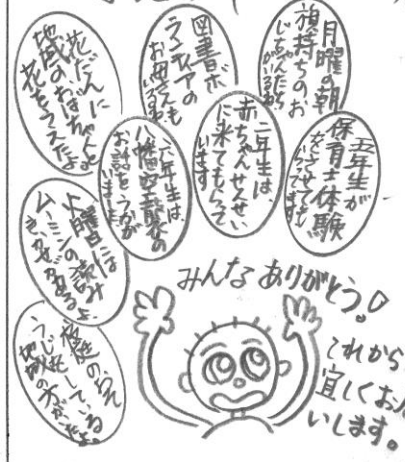 月曜の朝
旗持ちのお
じいちゃんたち
図書ボ
ランティアの
お母さんも
花だんに
地域のおばちゃんと
花をうえたよ
五年生が
保育士体験
をさせても
らってます
二年生は、
赤ちゃんせんせい
に来てもらって
います
六年生は、
お話をうかが
いました
火曜日には
ムーミンの読み
きかせがあるよ
校庭の
みんなありがとう。
これから
宜しくお
いします。